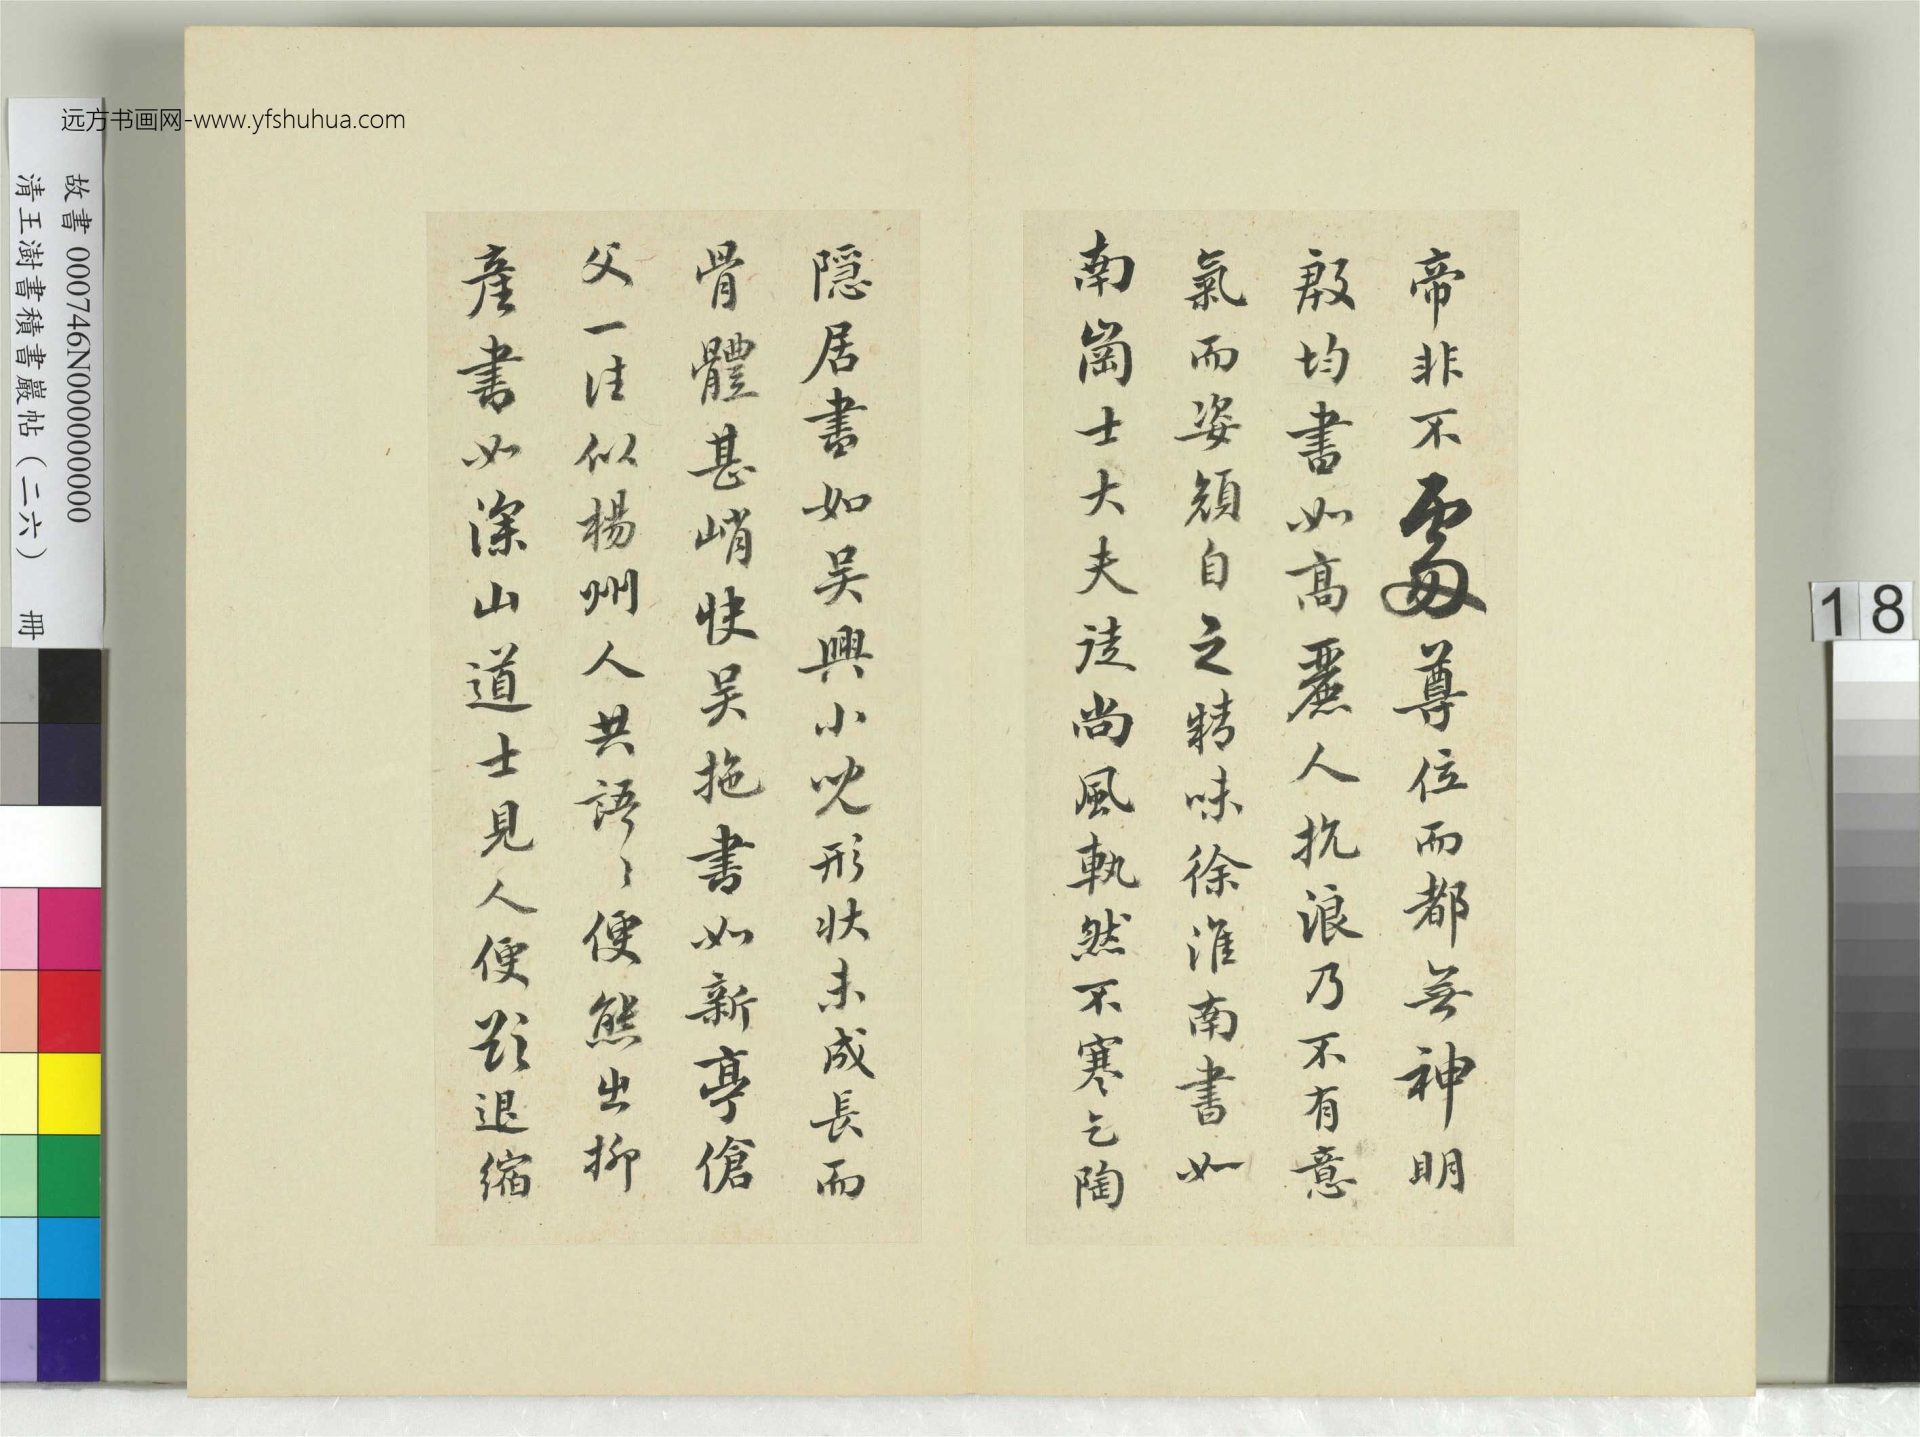 远方书画网-www.yfshuhua.com
故書 000746N000000000
清王澍書積書巖帖（二六） 冊
18
帝非不處尊位而都無神明
殷均書如高麗人抗浪乃不有意
氣而姿顏自之精味徐淮南書如
南崗士大夫徒尚風軌然不寒乞陶
隱居書如吳興小兒形狀未成長而
骨體甚峭快吳拖書如新亭傖
父一往似楊州人共語〻便態出柳
產書如深山道士見人便欲退縮